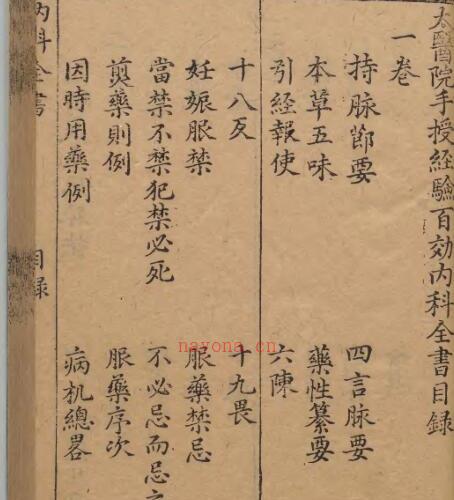 太醫院手授經驗百効內科全書目錄
一卷
持脉節要 四言脉要
本草五味 藥性纂要
引經報使 六陳
十八反 十九畏
妊娠服禁 服藥禁忌
當禁不禁犯禁必死 不必忌而忌
煎藥則例 服藥序次
因時用藥例 病机總畧
內科全書 目錄
nayona.cn